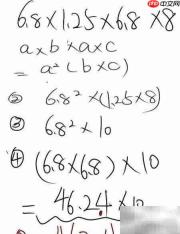 6.8×1.25×6.8×8
a×b×a×c
= a²(b×c)
② 6.8²×(1.25×8)
③ 6.8²×10
④ (6.8×6.8)×10
= 46.24×10